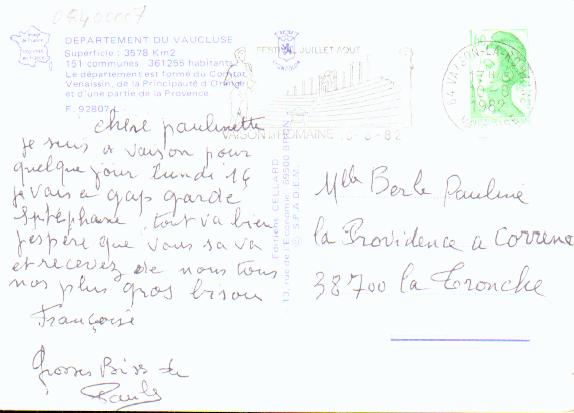 08400007
DEPARTEMENT DU VAUCLUSE
Superficie : 3578 Km2
151 communes 361255 habitants
Le département est formé du Comtat
Venaissin, de la Principauté d'Orange
et d'une partie de la Provence.
F. 92807
FESTIVAL JUILLET AOUT
VAISON ROMAINE
84 VAISON-LA-ROMAINE
1982
Editions CELLARD
13, rue de l'Economie 69500 BRON
© S.P.A.D.E.M.
chère paulinette
je suis a vaison pour
quelque jour lundi 16
je vais a gap garde
Stéphane, tout va bien
j'espère que vous sa va
et recevez de nous tous
nos plus gros bisou
Françoise
Grosses Bises de
Paule
Mlle Berle Pauline
la Providence a Correnc
38700 la Tronche